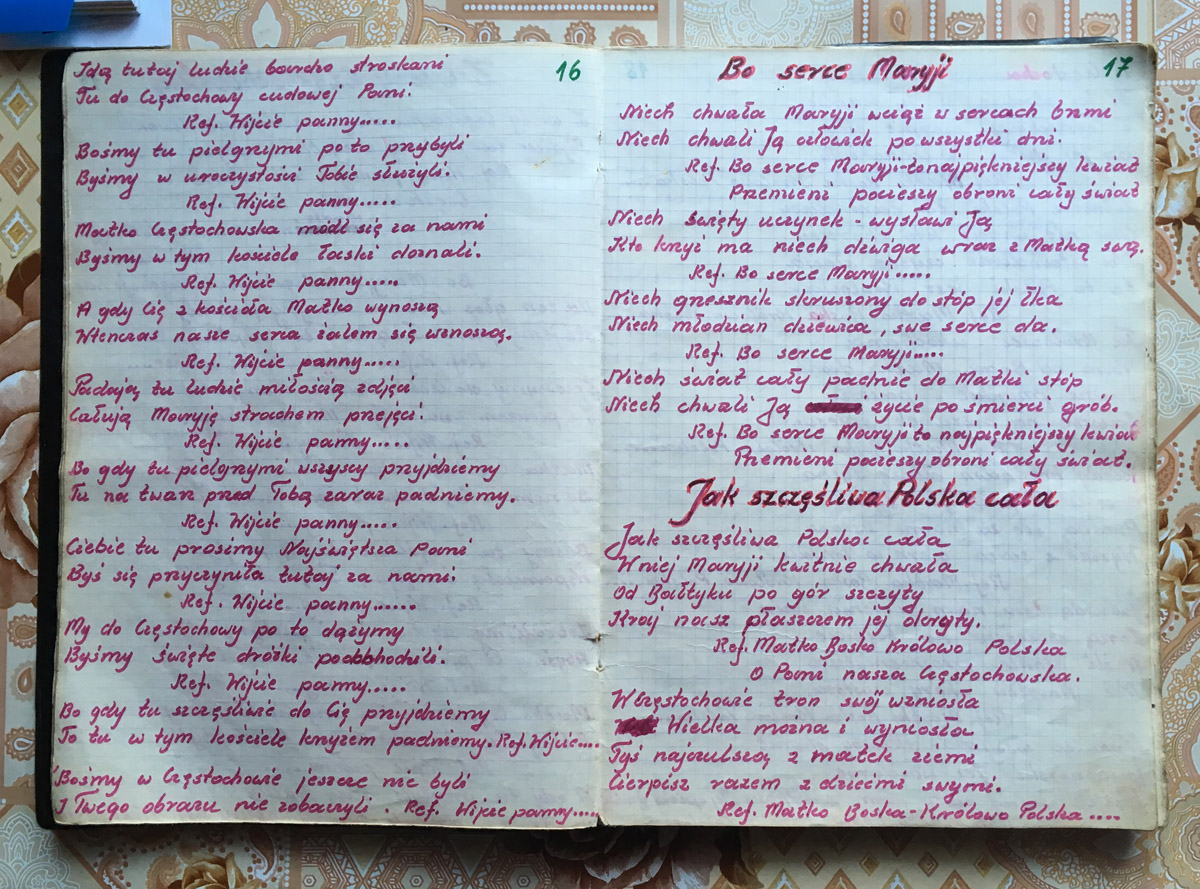 16
Idą tutaj ludzie bardzo stroskani
Tu do Częstochowy cudowej Pani!
Ref. Wijcie panny.....
Bośmy tu pielgrzymi po to przybyli
Byśmy w uroczystości Tobie służyli.
Ref. Wijcie panny.....
Matko Częstochowska módl się za nami
Byśmy w tym kościele łaski doznali.
Ref. Wijcie panny.....
A gdy Cię z kościoła Matko wynoszą
Wtenczas nasze serca żalem się wznoszą.
Ref. Wijcie panny.....
Padają tu ludzie miłością zdjęci
Całują Maryję strachem przejęci!
Ref. Wijcie panny.....
Bo gdy tu pielgrzymi wszyscy przyjdziemy
Tu na twarz przed Tobą zaraz padniemy.
Ref. Wijcie panny.....
Ciebie tu prosimy Najświętsza Pani
Byś się przyczyniła tutaj za nami!
Ref. Wijcie panny......
My do Częstochowy po to dążymy
Byśmy święte dróżki podobhodzili.
Ref. Wijcie panny.....
Bo gdy tu szczęśliwie do Cię przyjdziemy
To tu w tym kościele krzyżem padniemy. Ref. Wijcie....
Bośmy w Częstochowie jeszcze nie byli
I Twego obrazu nie zobaczyli. Ref. Wijcie panny.....
17
Bo serce Maryji
Niech chwała Maryji wciąż w sercach brzmi
Niech chwali Ją człowiek po wszystki dni.
Ref. Bo serce Maryji-to najpiękniejszy kwiat
Przemieni pocieszy obroni cały świat
Niech święty uczynek - wysławi Ją
Kto krzyż ma niech dźwiga wraz z Matką swą.
Ref. Bo serce Maryji.....
Niech grzesznik skruszony do stóp jej łka
Niech młodzian dziewica, swe serce da.
Ref. Bo serce Maryji.....
Niech świat cały padnie do Matki stóp
Niech chwali Ją życie po śmierci grób.
Ref. Bo serce Maryji to najpiękniejszy kwiat
Przemieni pocieszy obroni cały świat.
Jak szczęśliwa Polska cała
Jak szczęśliwa Polska cała
W niej Maryji kwitnie chwała
Od Bałtyku po gór szczyty
Kraj nasz płaszczem jej okryty.
Ref. Matko Bosko Królowo Polska
O Pani nasza Częstochowska.
W Częstochowie tron swój wzniosła
Wielka można i wyniosła
Tyś najczulszą z matek ziemi
Cierpisz razem z dziećmi swymi.
Ref. Matko Boska-Królowo Polska....